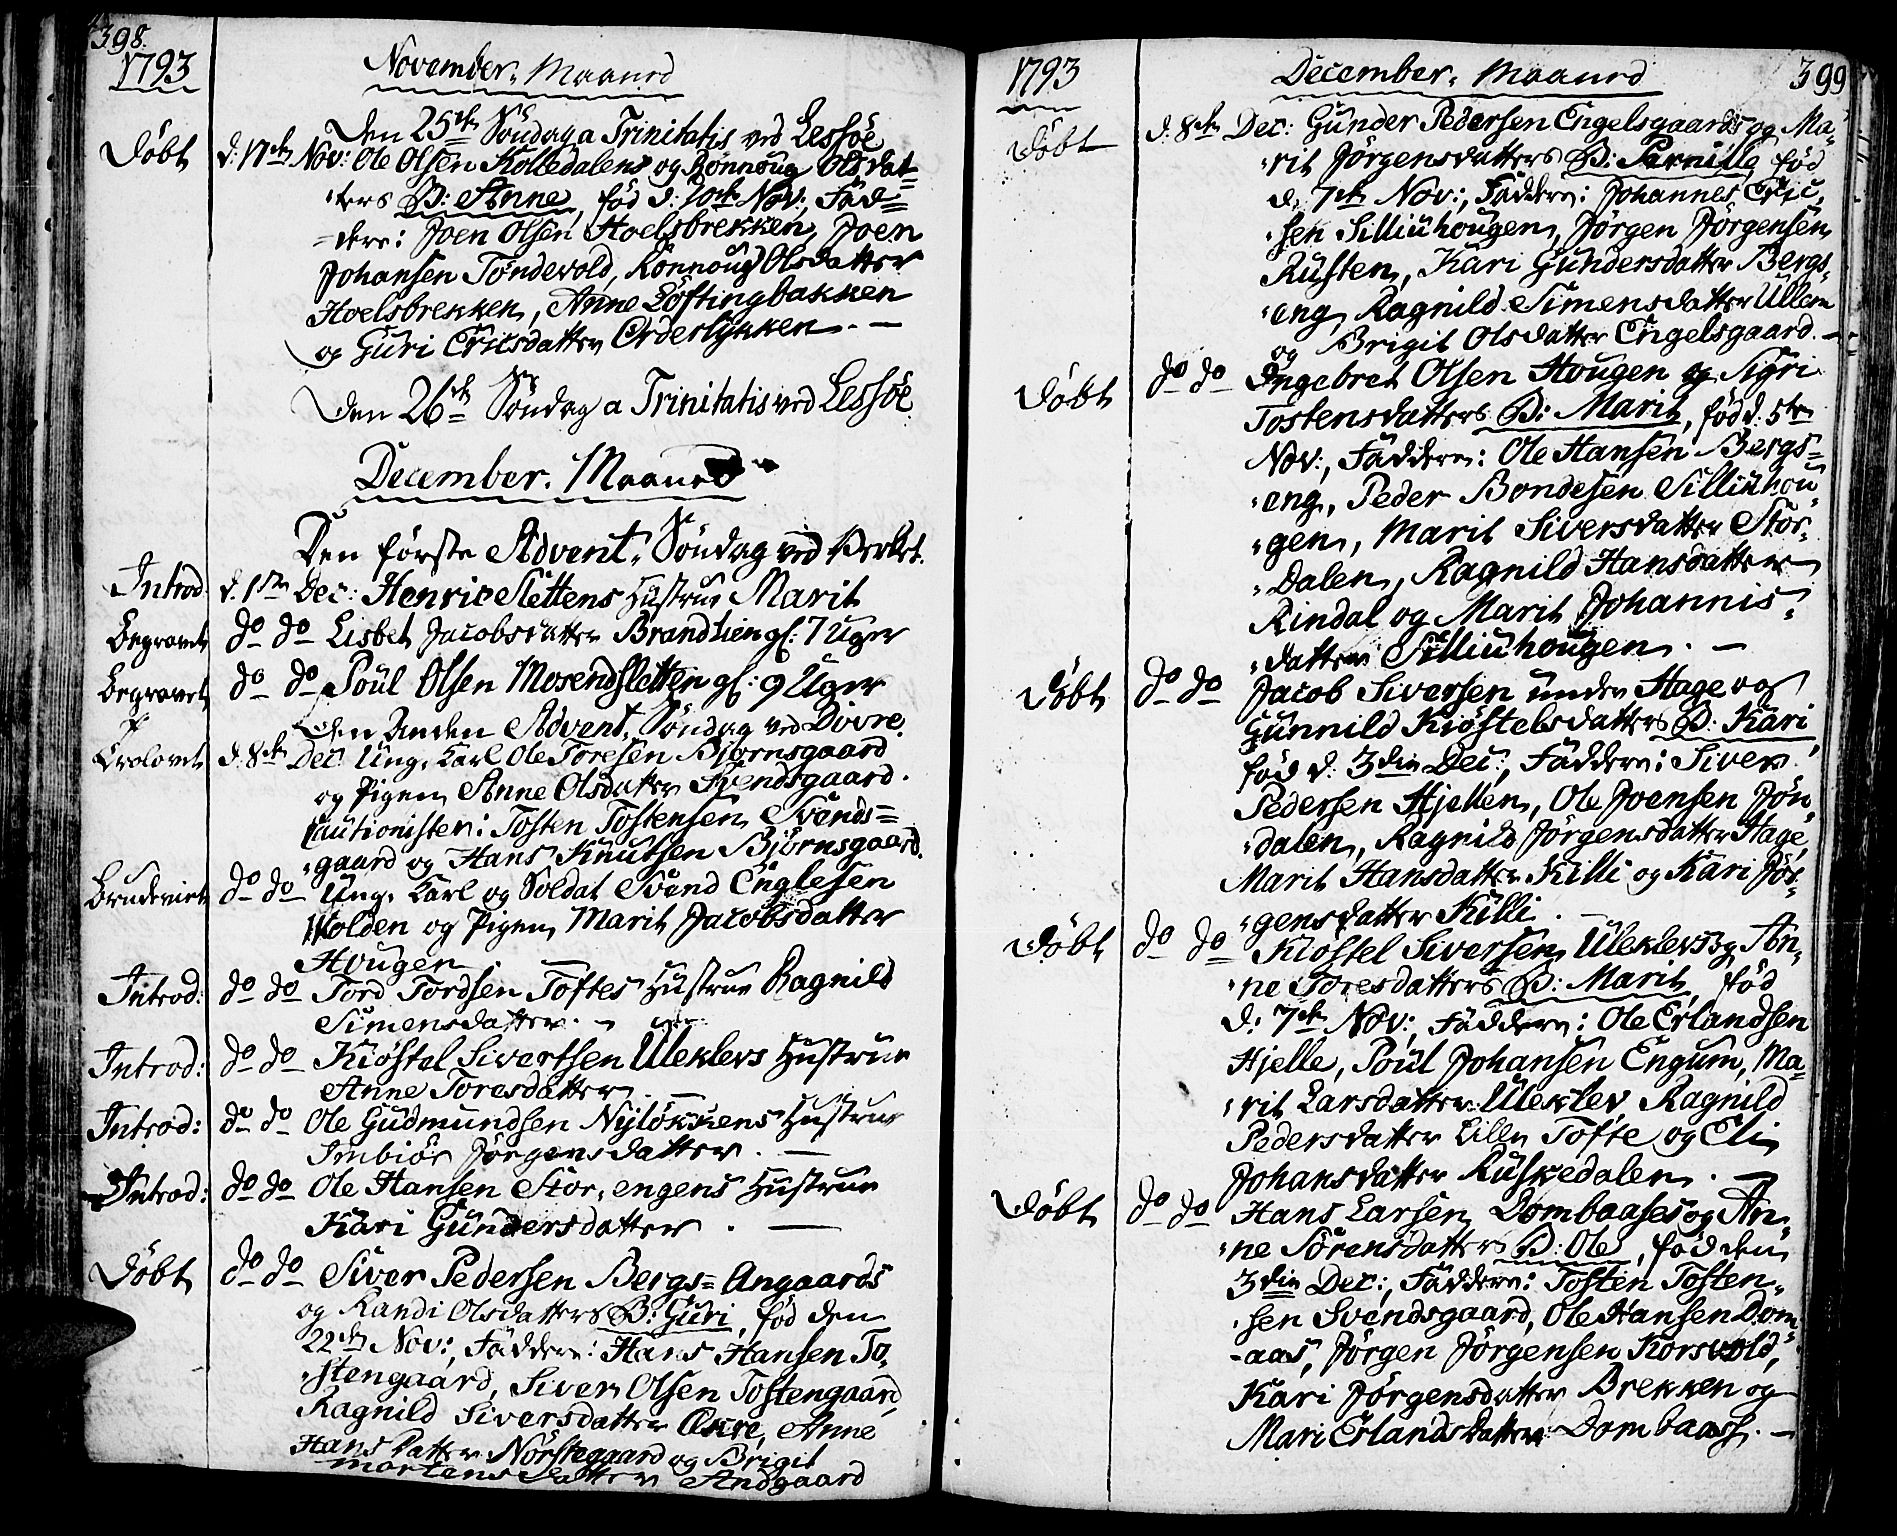 398.
1793
November. Maaned
Den 25de Söndag a Trinitatis ved Lessöe
Döbt d. 17de Nov: Ole Olsen Kolledalens og Rönnoug Olsdat=
ters B: Anne, föd d: 10de Nov:, Fad=
dere: Joen Olsen Hoelsbrekken, Joen
Johansen Töndevold, Rönnoug Olsdatter
Hoelsbrekken, Anne Löftingbakken
og Guri Ericsdatter Orderlykken. —
Den 26de Söndag a Trinitatis ved Lessöe
December. Maaned
Den förste Advent. Söndag ved Verket.
Introd d. 1ste Dec: Henric Slettens Hustrue Marit
Begravet do do Lisbet Jacobsdatter Brandlien gl: 7 Uger
Begravet do do Poul Olsen Mosendsletten gl: 9 Uger
Den Anden Advent. Söndag ved Dovre.
Trolovet d. 8de Dec: Ung. Karl Ole Toresen Björnsgaard
og Pigen Anne Olsdatter Svendsgaard.
Cautionister: Tosten Tostensen Svends=
gaard og Hans Knutsen Björnsgaard.
Brudeviet do do Ung. Karl og Soldat Svend Englesen
Holden og Pigen Marit Jacobsdatter
Hougen
Introd: do do Tord Tordsen Toftes Hustrue Ragnild
Simensdatter. —
Introd: do do Kiöstel Sivertsen Uleklevs Hustrue
Anne Toresdatter
Introd: do do Ole Gudmundsen Nylökkens Hustrue
Imbiör Jörgensdatter. —
Introd: do do Ole Hansen Stor,engens Hustrue
Kari Gundersdatter. —
Döbt do do Siver Pedersen Bergs=Angaards
og Randi Olsdatters B: Guri, föd den
22de Nov:, Faddere: Hans Hansen To,
stengaard, Siver Olsen Tostengaard,
Ragnild Siversdatter Okre, Anne
Hansdatter Nörstegaard og Brigit
Mortensdatter Andgaard
1793
December. Maaned
399
Döbt d. 8de Dec: Gunder Pedersen Engelsgaards og Ma=
rit Jörgensdatters B: Pernille, föd
d. 7de Nov:, Faddere: Johannes Eric,
sen Silliuhougen, Jörgen Jörgensen
Rusten, Kari Gundersdatter Bergs=
eng, Ragnild Simensdatter Ullem
og Brigit Olsdatter Engelsgaard. —
Döbt do do Ingebret Olsen Hougen og Sigri
Tostensdatters B: Marit, föd d. 5te
Nov:, Faddere: Ole Hansen Bergs=
eng, Peder Bondesen Silliuhou
gen, Marit Siversdatter Stor,
Dalen, Ragnild Hansdatter
Rindal og Marit Johannis,
datter Silliuhougen. —
Döbt do do Jacob Siversen under Hage og
Gunnild Kiöstelsdatters B: Kari
föd d. 3die Dec:, Faddere: Siver
Pedersen Hjellen, Ole Joensen Jön
dalen, Ragnild Jörgensdatter Hage,
Marit Hansdatter Killi og Kari Jör,
gensdatter Killi.
Döbt do do Kiöstel Siversen Uleklevs og An,
ne Toresdatters B: Marit, föd
d: 7de Nov:, Faddere: Ole Erlandsen
Hjelle, Poul Johansen Engum, Ma=
rit Larsdatter Uleklev, Ragnild
Pedersdatter Lille Tofte og Eli
Johansdatter Ruskedalen. —
Döbt do do Hans Larsen Dombaases og An,
ne Sörensdatters B: Ole, föd den
3die Dec:, Faddere: Tosten Tosten,
sen Svendsgaard, Ole Hansen Dom
aas, Jörgen Jörgensen Korsvold,
Kari Jörgensdatter Brekken og
Mari Erlandsdatter Dombaas. —